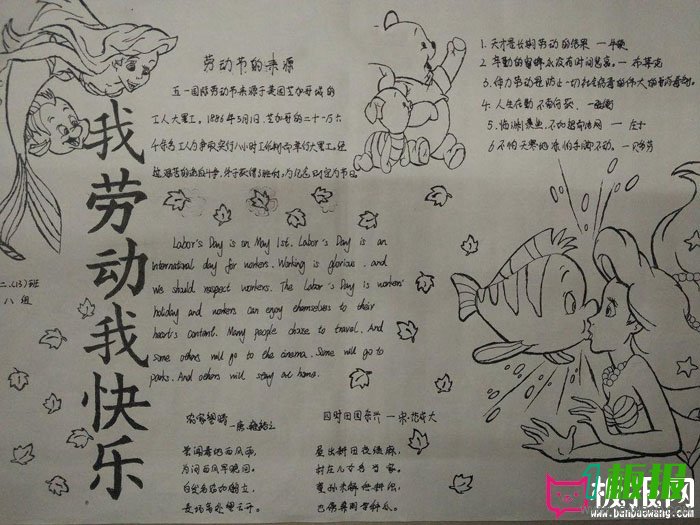 我劳动我快乐
二.(15)班
八组
劳动节的来源
五一国际劳动节来源于美国芝加哥城的
工人大罢工。1886年5月1日,芝加哥的二十一万六
千余名工人为争取实行八小时工作制而举行大罢工,经
Labor's Day is on May 1st. Labor's Day is an
international day for workers. Working is glorious, and
we should respect workers. The Labor's Day is workers'
holiday and workers can enjoy themselves to their
heart's content. Many people choose to travel. And
some others will go to the cinema. Some will go to
parks. And others will stay at home.
1. 天才是长期劳动的结果
2. 辛勤的蜜蜂永没有时间悲哀。
3. 体力劳动是防止一切社会病毒的伟大的消毒剂。
4. 人生在勤 不索何获
5. 临渊羡鱼,不如退而结网
农家望晴
唐·雍裕之
尝闻秦地西风雨,
为问西风早晚回。
白发老农如鹤立,
麦场高处望云开。
四时田园杂兴 — 宋·范成大
昼出耘田夜绩麻,
村庄儿女各当家。
童孙未解供耕织,
也傍桑阴学种瓜。
1板报
板报网
www.banbaowang.com